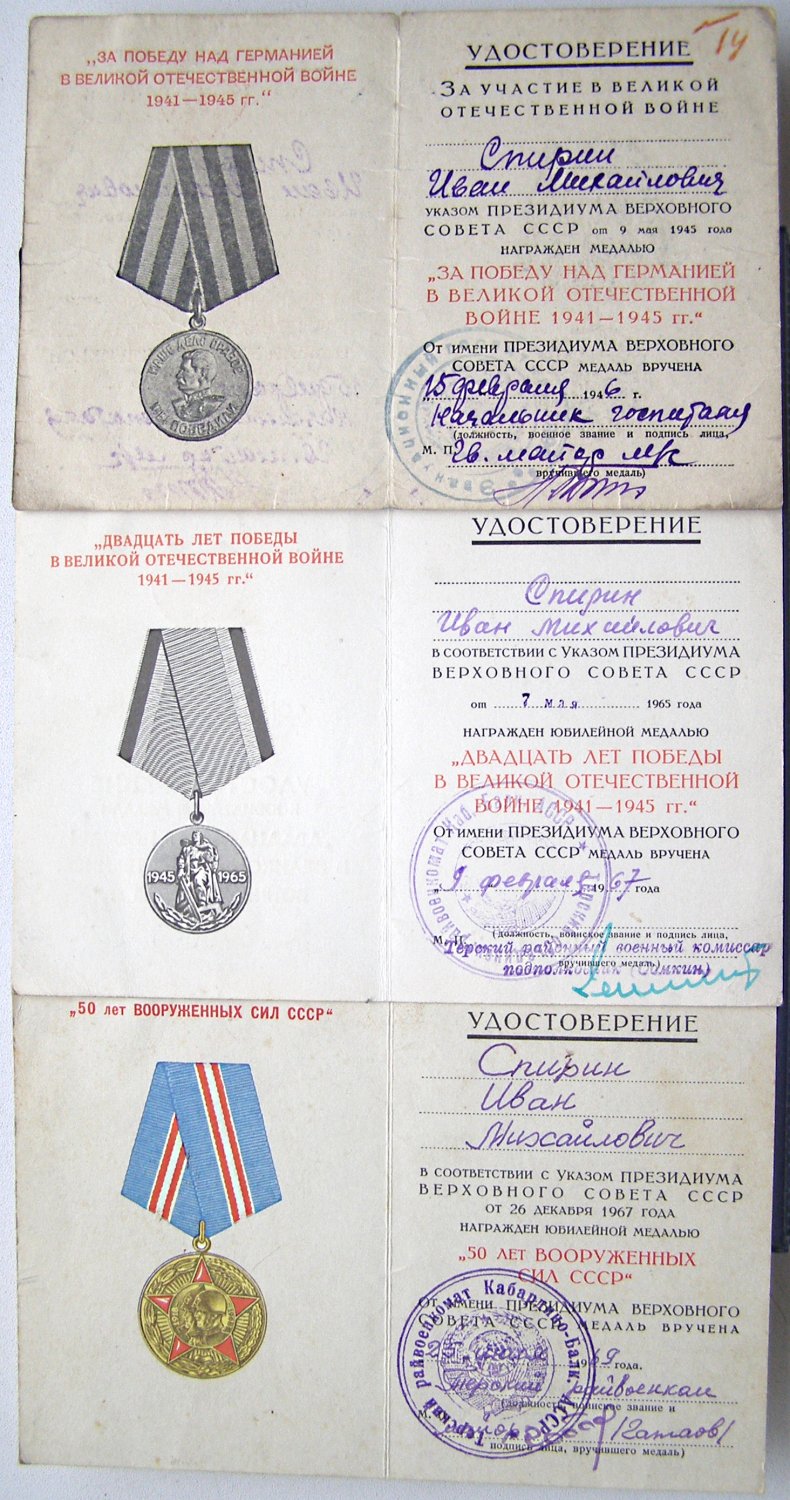 „ЗА ПОБЕДУ НАД ГЕРМАНИЕЙ
В ВЕЛИКОЙ ОТЕЧЕСТВЕННОЙ ВОЙНЕ
1941—1945 гг.“
НАШЕ ДЕЛО ПРАВОЕ
МЫ ПОБЕДИЛИ
14
УДОСТОВЕРЕНИЕ
ЗА УЧАСТИЕ В ВЕЛИКОЙ
ОТЕЧЕСТВЕННОЙ ВОЙНЕ
Спирин
Иван Михайлович
УКАЗОМ ПРЕЗИДИУМА ВЕРХОВНОГО
СОВЕТА СССР от 9 мая 1945 года
НАГРАЖДЕН МЕДАЛЬЮ
„ЗА ПОБЕДУ НАД ГЕРМАНИЕЙ
В ВЕЛИКОЙ ОТЕЧЕСТВЕННОЙ
ВОЙНЕ 1941—1945 гг.“
От имени ПРЕЗИДИУМА ВЕРХОВНОГО
СОВЕТА СССР МЕДАЛЬ ВРУЧЕНА
15 февраля 1946 г.
Начальник госпиталя
(должность, военное звание и подпись лица,
М. П. Гв. майор м/с
вручившего медаль)
„ДВАДЦАТЬ ЛЕТ ПОБЕДЫ
В ВЕЛИКОЙ ОТЕЧЕСТВЕННОЙ ВОЙНЕ
1941—1945 гг.“
1945 1965
УДОСТОВЕРЕНИЕ
Спирин
Иван Михайлович
В СООТВЕТСТВИИ С УКАЗОМ ПРЕЗИДИУМА
ВЕРХОВНОГО СОВЕТА СССР
от 7 мая 1965 года
НАГРАЖДЕН ЮБИЛЕЙНОЙ МЕДАЛЬЮ
„ДВАДЦАТЬ ЛЕТ ПОБЕДЫ
В ВЕЛИКОЙ ОТЕЧЕСТВЕННОЙ
ВОЙНЕ 1941—1945 гг.“
От имени ПРЕЗИДИУМА ВЕРХОВНОГО
СОВЕТА СССР МЕДАЛЬ ВРУЧЕНА
„9 февраля 1967 года
(должность, воинское звание и подпись лица,
М. П. Терский районный военный комиссар
вручившего медаль)
подполковник (Сомкин)
„50 лет ВООРУЖЕННЫХ СИЛ СССР“
УДОСТОВЕРЕНИЕ
Спирин
Иван
Михайлович
В СООТВЕТСТВИИ С УКАЗОМ ПРЕЗИДИУМА
ВЕРХОВНОГО СОВЕТА СССР
ОТ 26 ДЕКАБРЯ 1967 ГОДА
НАГРАЖДЕН ЮБИЛЕЙНОЙ МЕДАЛЬЮ
„50 ЛЕТ ВООРУЖЕННЫХ
СИЛ СССР“
От имени ПРЕЗИДИУМА ВЕРХОВНОГО
СОВЕТА СССР МЕДАЛЬ ВРУЧЕНА
1969 года.
Терский райвоенком
(должность, воинское звание и
М. П. майор
подпись лица, вручившего медаль)
Терский райвоенкомат Кабардино-Балк. АССР